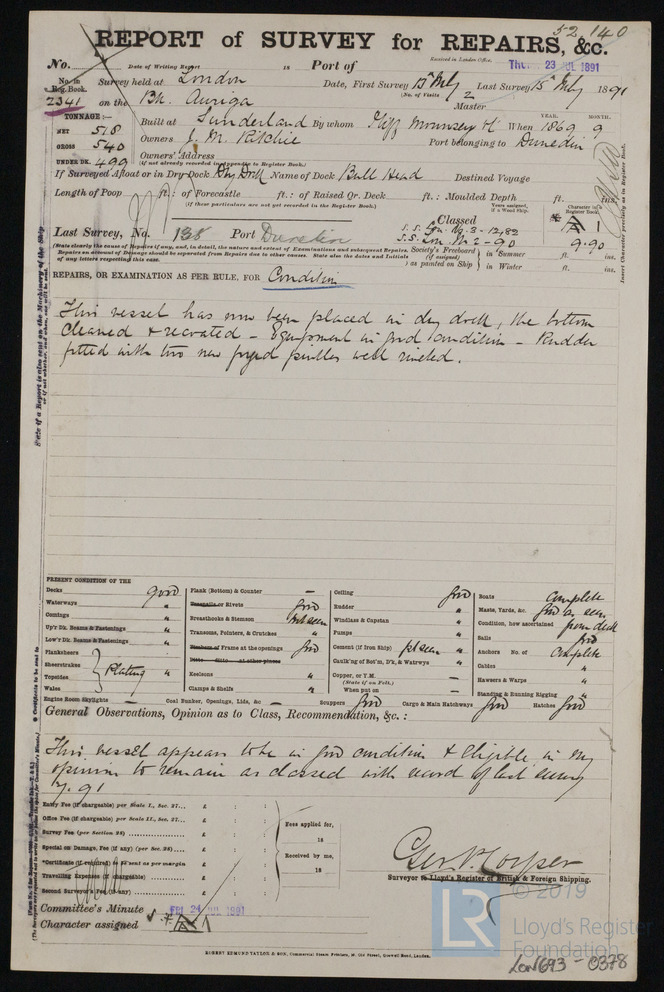 52,140
REPORT of SURVEY for REPAIRS, &c.
No. Date of Writing Report 18 Port of Received in London Office, THUR. 23 JUL 1891
No. in Reg. Book. Survey held at London Date, First Survey 15th July Last Survey 15th July 1891
(No. of Visits 2
2341 on the Bk. Auriga Master
TONNAGE:—
NET 518 Built at Sunderland By whom Iliff Mounsey & Co When 1869 YEAR. MONTH. 9
GROSS 540 Owners J. M. Ritchie Port belonging to Dunedin
UNDER DK. 499 Owners' Address
(if not already recorded in Appendix to Register Book.)
If Surveyed Afloat or in Dry Dock Dry Dock Name of Dock Bull Head Destined Voyage
Length of Poop ft.: of Forecastle ft.: of Raised Qr. Deck ft.: Moulded Depth ft. ins.
(if these particulars are not yet recorded in the Register Book.)
Last Survey, No. 138 Port Dunedin
Classed
Years assigned, if a Wood Ship.
Character in Register Book
* A 1
9.90
Society's Freeboard (if assigned) as painted on Ship } in Summer ft. ins.
in Winter ft. ins.
Insert Character precisely as in Register Book.
REPAIRS, OR EXAMINATION AS PER RULE, FOR Condition
This vessel has now been placed in dry dock, the bottom
cleaned & recoated – Equipment in good condition – Rudder
fitted with two new forged pintles well riveted.
PRESENT CONDITION OF THE
Decks good
Waterways "
Comings "
Up'r Dk. Beams & Fastenings "
Low'r Dk. Beams & Fastenings "
Planksheers
Sheerstrakes
Topsides
Wales
} Plating "
Engine Room Skylights —
Plank (Bottom) & Counter —
Treenails or Rivets good
Breasthooks & Stemson Not seen
Transoms, Pointers, & Crutches "
Timbers of Frame at the openings good
Ditto Ditto at other places
Keelsons "
Clamps & Shelfs "
Coal Bunker, Openings, Lids, &c —
Ceiling good
Rudder "
Windlass & Capstan "
Pumps "
Cement (if Iron Ship) Not seen
Caulk'ng of Bot'm, D'k, & Watrwys "
Copper, or Y.M.
(State if on Felt.)
When put on —
Scuppers good Cargo & Main Hatchways good Hatches good
Boats Complete
Masts, Yards, &c. good as seen
Condition, how ascertained from deck
Sails good
Anchors No. of Complete
Cables "
Hawsers & Warps "
Standing & Running Rigging "
General Observations, Opinion as to Class, Recommendation, &c.:
This vessel appears to be in good condition & eligible in my
opinion to remain as classed with record of last survey
7. 91
Entry Fee (if chargeable) per Scale I., Sec. 27... £ : :
Office Fee (if chargeable) per Scale II., Sec. 27... £ : :
Survey Fee (per Section 28) £ : :
Special on Damage, Fee (if any) (per Sec. 28)... £ : :
*Certificate (if required) to be sent as per margin
Travelling Expenses (if chargeable) £ : :
Second Surveyor's Fee (if any) £ : :
Fees applied for,
18
Received by me,
18
Surveyor to Lloyd's Register of British & Foreign Shipping.
Committee's Minute FRI. 24 JUL 1891
Character assigned * A 1
ROBERT EDMUND TAYLOR & SON, Commercial Steam Printers, 19, Old Street, Goswell Road, London.
© 2019
LR
Lloyd's Register
Foundation
LON693-0378